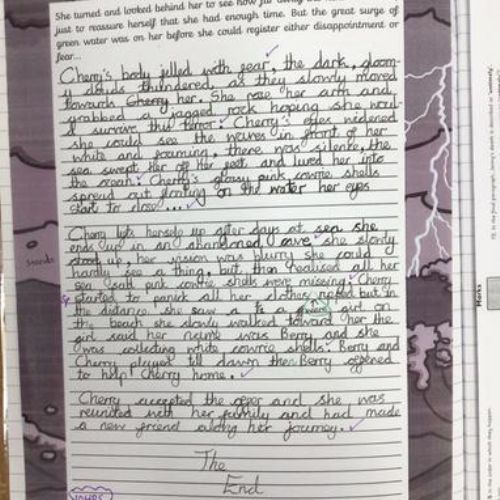 She turned and looked behind her to see how far away the
just to reassure herself that she had enough time. But the great surge of
green water was on her before she could register either disappointment or
fear...
Cherry's body filled with fear, the dark, gloom-
y clouds thundered, as they slowly moved
towards Cherry her. She rose her arm and
grabbed a jagged rock hoping she woul-
d survive this terror. Cherry's eyes widened
she could see the waves in front of her
white and foaming, there was silence, the
sea swept her off her feet and lured her into
the ocean. Cherry's glossy pink cowrie shells
spread out floating on the water her eyes
start to close...
Cherry lifts herself up after days at sea she
ends up in an abandoned cave, she slowly
stood up, her vision was blurry she could
hardly see a thing, but then realised all her
sea salt pink cowrie shells were missing. Cherry
started to panick all her clothes ripped but in
the distance she saw a girl on
the beach she slowly walked toward her the
girl said her name was Berry and she
was collecting white cowrie shells. Berry and
Cherry played till dawn then Berry offered
to help Cherry home.
Cherry accepted the offer and she was
reunited with her family and had made
a new friend along her journey.
The
End
Marks